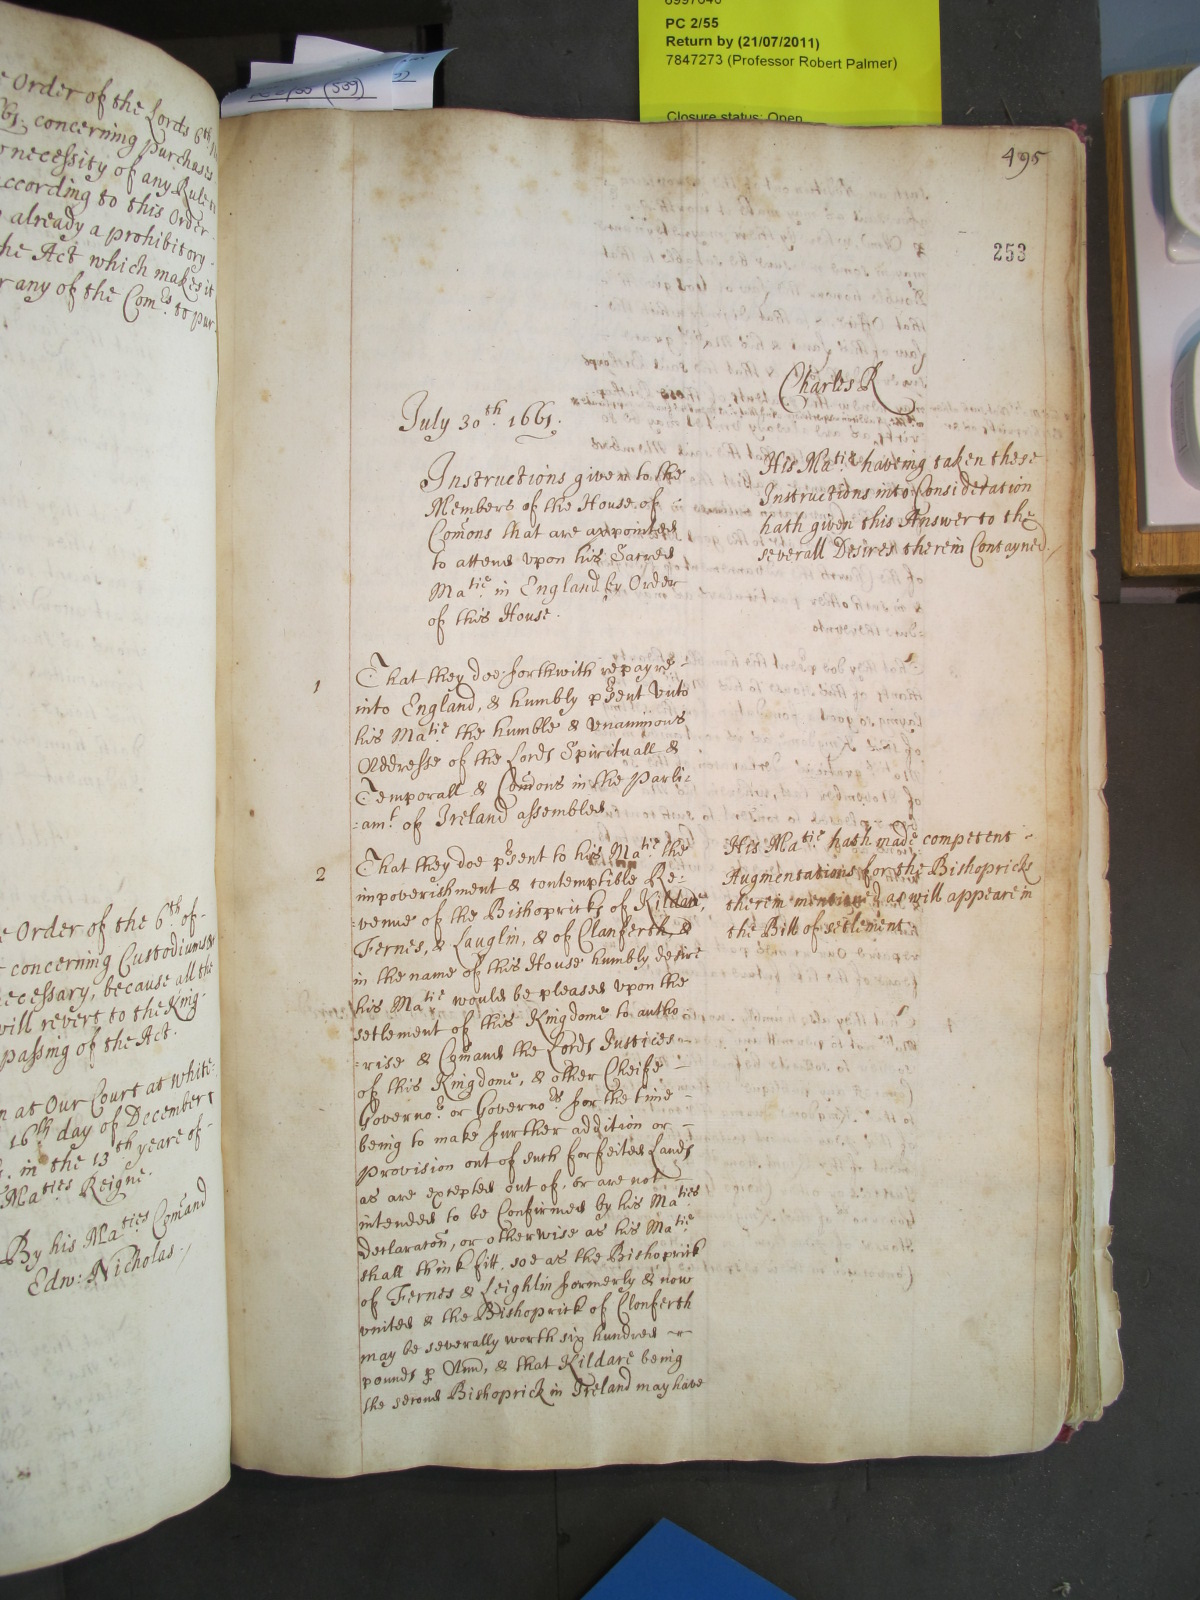 PC 2/55
Return by (21/07/2011)
7847273 (Professor Robert Palmer)
Closure status: Open
Order of the Lords 6th
concerning purchases
necessity of any Rule
ccording to this Order
already a prohibitory
he Act which makes it
r any of the Com.rs to pur
e Order of the 6th of
concerning Custodiums
ecessary, because all the
will revert to the King
passing of the Act.
n at Our Court at white:
16th day of December
in the 13th yeare of
Maties Reigne.
By his Maties Comand
Edw: Nicholas
495
253
Charles R
July 30th. 1661.
Instructions given to the
Members of the House of
Comons that are appointed
to attend upon his Sacred
Matie in England by Order
of this House.
His Matie having taken these
Instructions into Consideration
hath given this Answer to the
severall Desires therein Contayned
1
That they doe forthwith repayre
into England, & humbly psent vnto
his Matie the humble & vnanimous
Addresse of the Lords Spirituall &
Temporall & Comons in the Parli=
=amt of Ireland assembled
2
That they doe psent to his Matie the
impoverishment & contemptible Re=
=venue of the Bishopricks of Kildare,
Fernes, & Laughlin, & of Clanferth, &
in the name of this House humbly desire
his Matie would be pleased vpon the
setlement of this Kingdome to autho
=rise & Comand the Lords Justices
of this Kingdome, & other Cheife
Governor or Governors for the time
being to make further addition or
provision out of such forfeited Lands
as are excepted out of, or are not
intended to be Confirmed by his Maties
Declaraton, or otherwise as his Matie
shall think fitt, soe as the Bishoprick
of Fernes & Leighlin formerly & now
vnited & the Bishoprick of Clonferth
may be severally worth six hundred
pounds p Ann, & that Kildare being
the second Bishoprick in Ireland may have
His Matie hath made competent
Augmentations for the Bishopricks
therein mentioned as will appeare in
the Bill of setlement